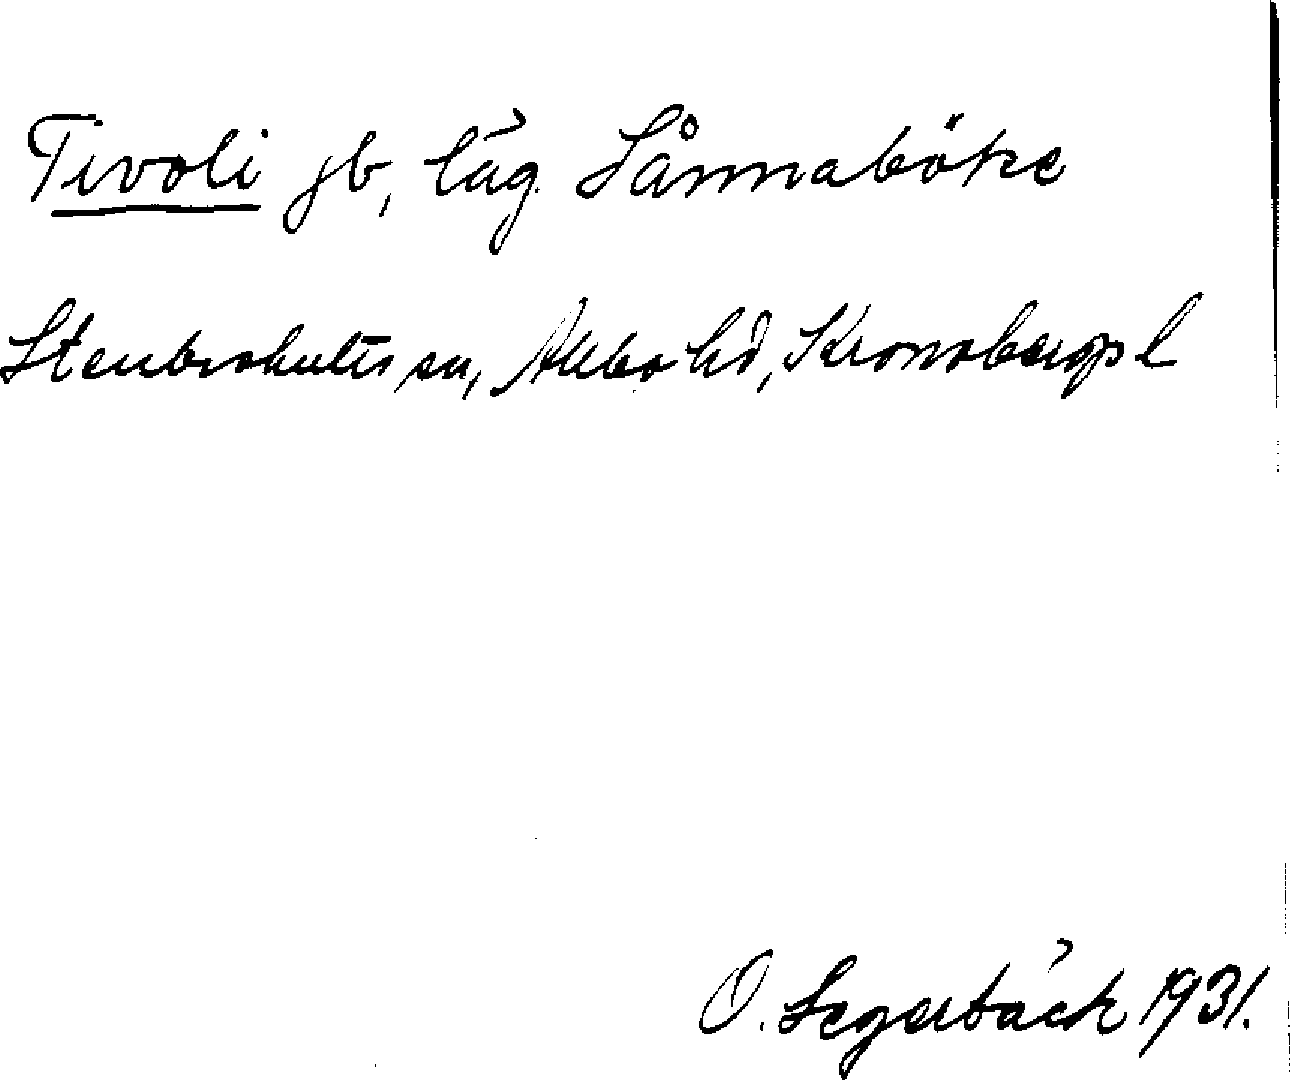 Tivoli jb, läg. Sånnaböke
Stenbrohults sn, Allbo hd, Kronobergs l
O. Segerbäck 1931.